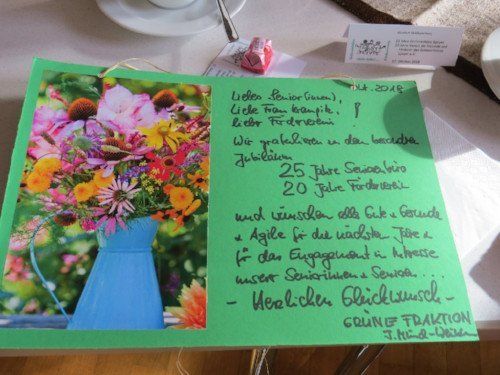 Okt. 2018
Liebe Senior(innen),
Liebe Frau
liebe Förderverein !
Wir gratulieren zu den besonderen
Jubiläum
25 Jahre Seniorenbüro
20 Jahre Förderverein
und wünschen alles Gute & Gesunde
& Agile für die nächsten Jahre &
für das Engagement im Interesse
unserer Seniorinnen & Senioren...
- Herzlichen Glückwunsch -
GRÜNE FRAKTION